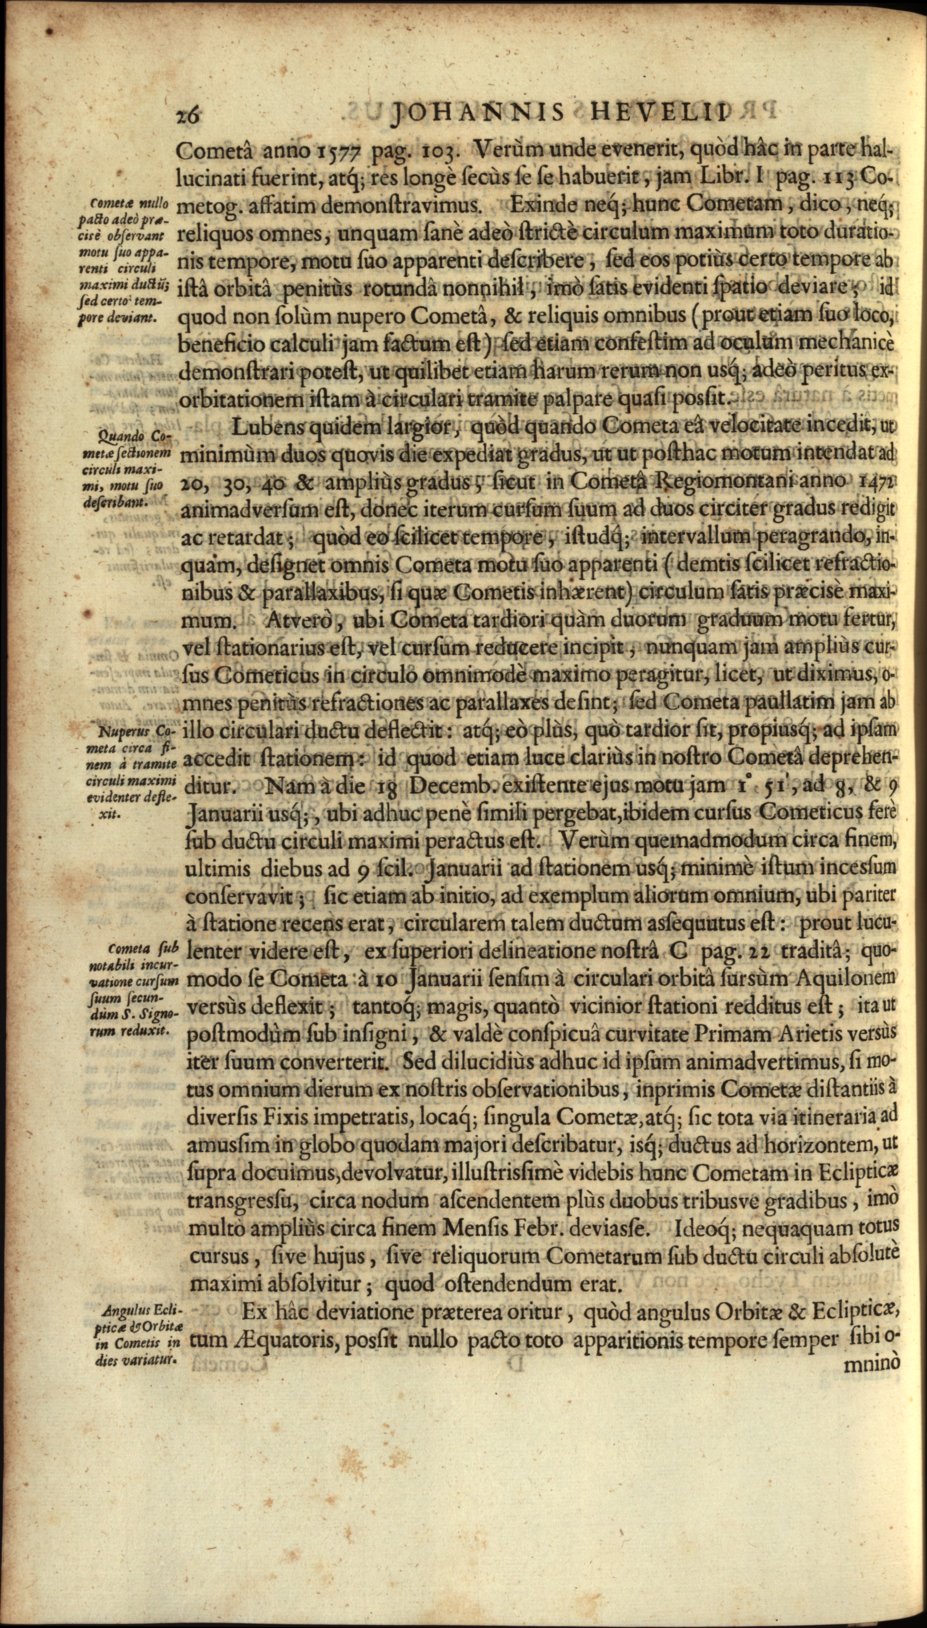 26 JOHANNIS HEVELII
Cometâ anno 1577 pag. 103. Verùm unde evenerit, quòd hâc in parte hal-
lucinati fuerint, atq́; res longè ſecùs ſe ſe habuerit, jam Libr. I pag. 113 Co-
metog. affatim demonſtravimus. Exinde neq́; hunc Cometam, dico, neq́;
reliquos omnes, unquam ſanè adeò ſtrictè circulum maximum toto duratio-
nis tempore, motu ſuo apparenti deſcribere, ſed eos potiùs certo tempore ab
iſtâ orbitâ penitùs rotundâ nonnihil, imò ſatis evidenti ſpatio deviare; id
quod non ſolùm nupero Cometâ, & reliquis omnibus (prout etiam ſuo loco,
beneficio calculi jam factum eſt) ſed etiam confeſtim ad oculum mechanicè
demonſtrari poteſt, ut quilibet etiam harum rerum non usq́; adeò peritus ex-
orbitationem iſtam à circulari tramite palpare quaſi poſſit.
Cometæ nullo
pacto adeò præ-
citè obſervant
motu ſuo appa-
renti circuli
maximi ductũ;
ſed certo tem-
pore deviant.
Lubens quidem largior, quòd quando Cometa eâ velocitate incedit, ut
minimùm duos quovis die expediat gradus, ut ut poſthac motum intendat ad
20, 30, 40 & ampliùs gradus, ſicut in Cometâ Regiomontani anno 1472
animadverſum eſt, donec iterum curſum ſuum ad duos circiter gradus redigit
ac retardat; quòd eo ſcilicet tempore, iſtudq́; intervallum peragrando, in-
quam, deſignet omnis Cometa motu ſuo apparenti (demtis ſcilicet refractio-
nibus & parallaxibus, ſi quæ Cometis inhærent) circulum ſatis præcisè maxi-
mum. Atverò, ubi Cometa tardiori quàm duorum graduum motu fertur,
vel ſtationarius eſt, vel curſum reducere incipit, nunquam jam ampliùs cur-
ſus Cometicus in circulo omnimodè maximo peragitur, licet, ut diximus, o-
mnes penitùs refractiones ac parallaxes deſint; ſed Cometa paullatim jam ab
illo circulari ductu deflectit: atq́; eò plùs, quò tardior ſit, propiusq́; ad ipſam
accedit ſtationem: id quod etiam luce clariùs in noſtro Cometâ deprehen-
ditur. Nam à die 18 Decemb. exiſtente ejus motu jam 1° 51', ad 8, & 9
Januarii usq́;, ubi adhuc penè ſimili pergebat, ibidem curſus Cometicus ferè
ſub ductu circuli maximi peractus eſt. Verùm quemadmodum circa finem,
ultimis diebus ad 9 ſcil. Januarii ad ſtationem usq́; minimè iſtum inceſſum
conſervavit; ſic etiam ab initio, ad exemplum aliorum omnium, ubi pariter
à ſtatione recens erat, circularem talem ductum aſſequutus eſt: prout lucu-
lenter videre eſt, ex ſuperiori delineatione noſtrâ C pag. 22 traditâ; quo-
modo ſe Cometa à 10 Januarii ſenſim à circulari orbitâ ſursùm Aquilonem
versùs deflexit; tantoq́; magis, quantò vicinior ſtationi redditus eſt; ita ut
poſtmodùm ſub inſigni, & valdè conſpicuâ curvitate Primam Arietis versùs
iter ſuum converterit. Sed dilucidiùs adhuc id ipſum animadvertimus, ſi mo-
tus omnium dierum ex noſtris obſervationibus, inprimis Cometæ diſtantiis à
diverſis Fixis impetratis, locaq́; ſingula Cometæ, atq́; ſic tota via itineraria ad
amuſſim in globo quodam majori deſcribatur, isq́; ductus ad horizontem, ut
ſupra docuimus, devolvatur, illuſtriſſimè videbis hunc Cometam in Eclipticæ
transgreſſu, circa nodum aſcendentem plùs duobus tribusve gradibus, imò
multò ampliùs circa finem Menſis Febr. deviaſſe. Ideoq́; nequaquam totus
curſus, ſive hujus, ſive reliquorum Cometarum ſub ductu circuli abſolutè
maximi abſolvitur; quod oſtendendum erat.
Quando Co-
metæ ſectionem
circuli maxi-
mi, motu ſuo
deſcribant.
Nuperus Co-
meta circa fi-
nem à tramite
circuli maximi
evidenter defle-
xit.
Cometa ſub
notabili incur-
vatione curſum
ſuum ſecun-
dùm S. Signo-
rum reduxit.
Ex hâc deviatione præterea oritur, quòd angulus Orbitæ & Eclipticæ,
tum Æquatoris, poſſit nullo pacto toto apparitionis tempore ſemper ſibi o-
mninò
Angulus Ecli-
pticæ & Orbitæ
in Cometis in
dies variatur.